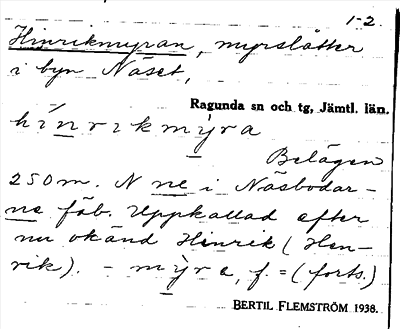 1-2.
Hinrikmyran, myrslåtter
i byn Näset,
Ragunda sn och tg, Jämtl. län.
hínrikmỳra
Belägen
250 m. N ne i Näsbodar-
ne fäb. Uppkallad efter
nu okänd Hinrik (Hen-
rik). - mỳra, f. = (forts.)
BERTIL FLEMSTRÖM 1938.